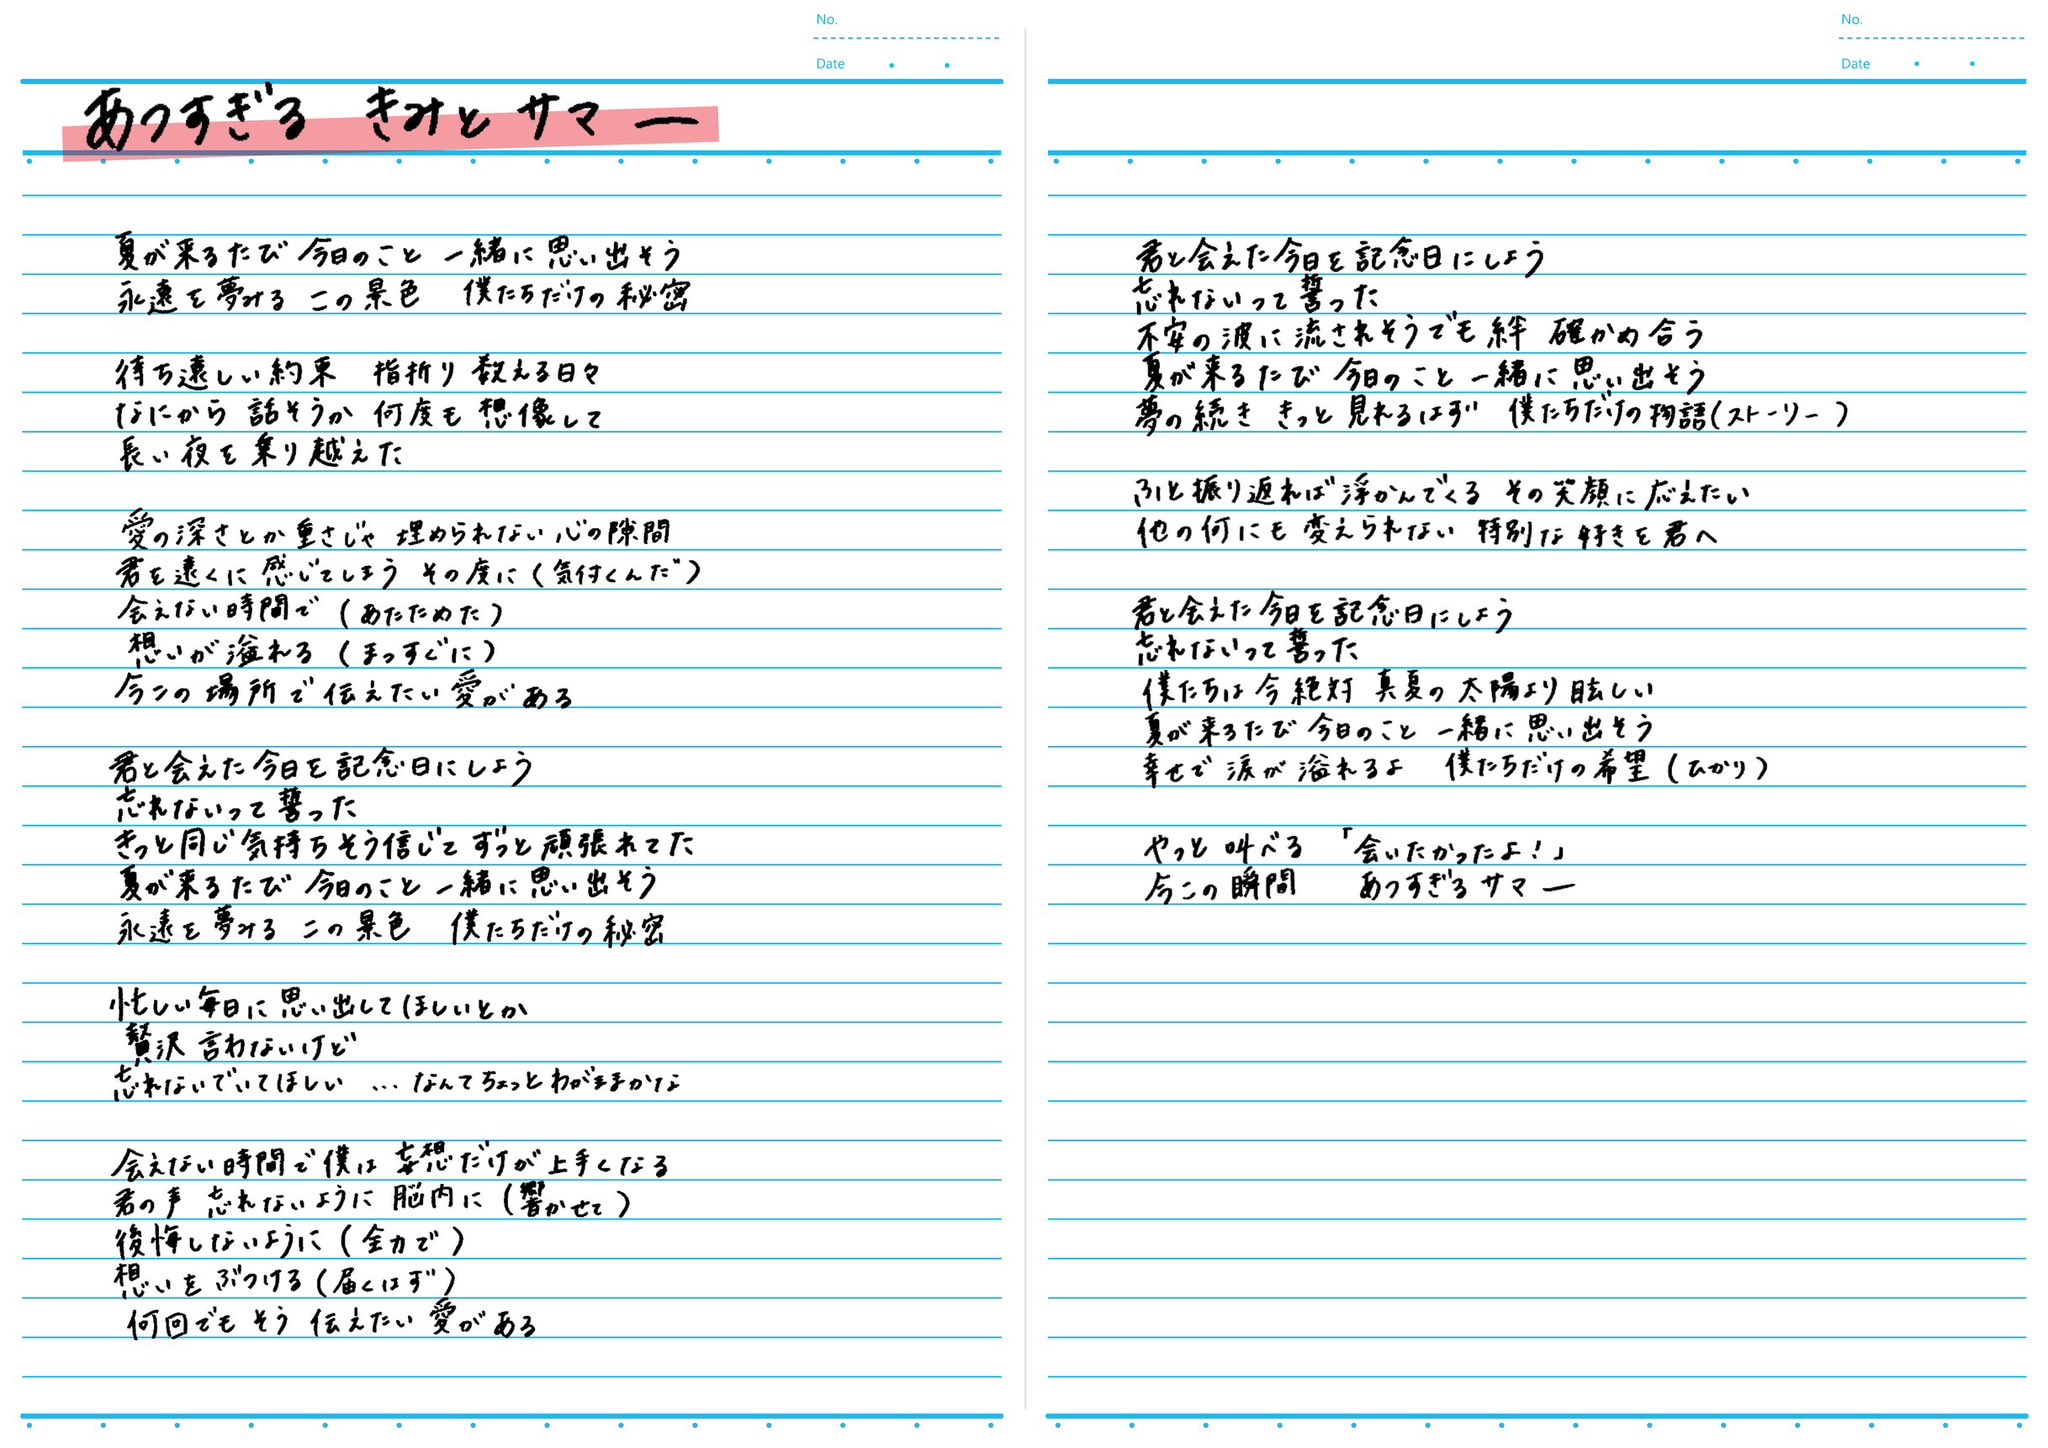 No.
Date
あつすぎる きみとサマー
夏が来るたび 今日のこと 一緒に思い出そう
永遠を夢みる この景色 僕たちだけの秘密
待ち遠しい約束 指折り数える日々
なにから話そうか 何度も想像して
長い夜を乗り越えた
愛の深さとか重さじゃ 埋められない心の隙間
君を遠くに感じてしまう その度に(気付くんだ)
会えない時間で(あたためた)
想いが溢れる(まっすぐに)
今この場所で伝えたい愛がある
君と会えた今日を記念日にしよう
忘れないって誓った
きっと同じ気持ちそう信じて ずっと頑張れてた
夏が来るたび 今日のこと 一緒に思い出そう
永遠を夢みる この景色 僕たちだけの秘密
忙しい毎日に思い出してほしいとか
贅沢言わないけど
忘れないでいてほしい …なんてちょっとわがままかな
会えない時間で僕は妄想だけが上手くなる
君の声 忘れないように脳内に(響かせて)
後悔しないように(全力で)
想いをぶつける(届くはず)
何回でもそう 伝えたい愛がある
No.
Date
君と会えた今日を記念日にしよう
忘れないって誓った
不安の波に流されそうでも絆 確かめ合う
夏が来るたび 今日のこと 一緒に思い出そう
夢の続き きっと見れるはず 僕たちだけの物語(ストーリー)
ふと振り返れば浮かんでくる その笑顔に応えたい
他の何にも変えられない 特別な好きを君へ
君と会えた今日を記念日にしよう
忘れないって誓った
僕たちは今絶対 真夏の太陽より眩しい
夏が来るたび 今日のこと 一緒に思い出そう
幸せで涙が溢れるよ 僕たちだけの希望(ひかり)
やっと叫べる 「会いたかったよ!」
今この瞬間 あつすぎるサマー